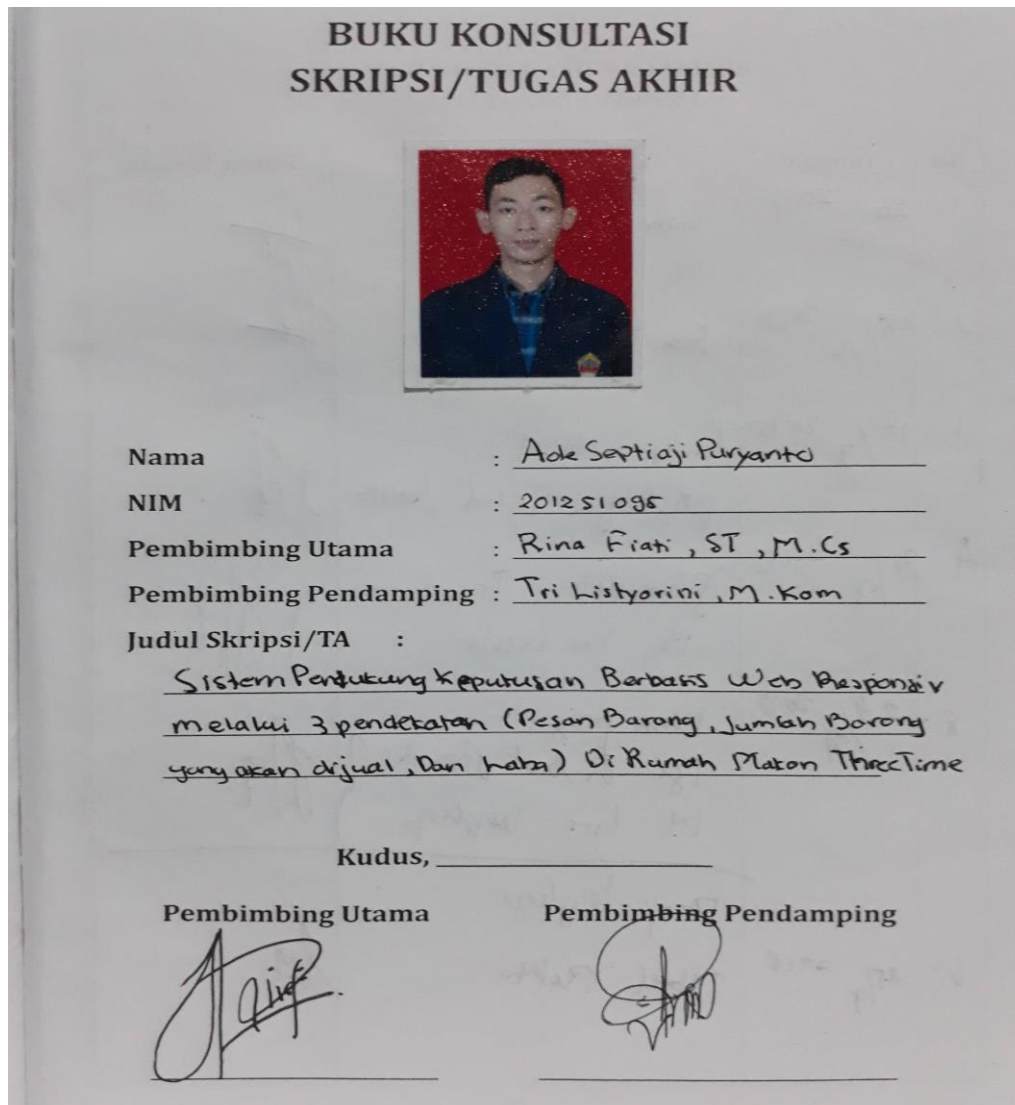 BUKU KONSULTASI
SKRIPSI/TUGAS AKHIR
Nama : Ade Septiaji Puryanto
NIM : 201251095
Pembimbing Utama : Rina Fiati, ST, M.Cs
Pembimbing Pendamping : Tri Listyorini, M.Kom
Judul Skripsi/TA :
Sistem Pendukung Keputusan Berbasis Web Responsiv
melalui 3 pendekatan (Pesan Barang, Jumlah Barang
yang akan dijual, Dan Laba) Di Rumah Makan ThreeTime
Kudus,
Pembimbing Utama Pembimbing Pendamping